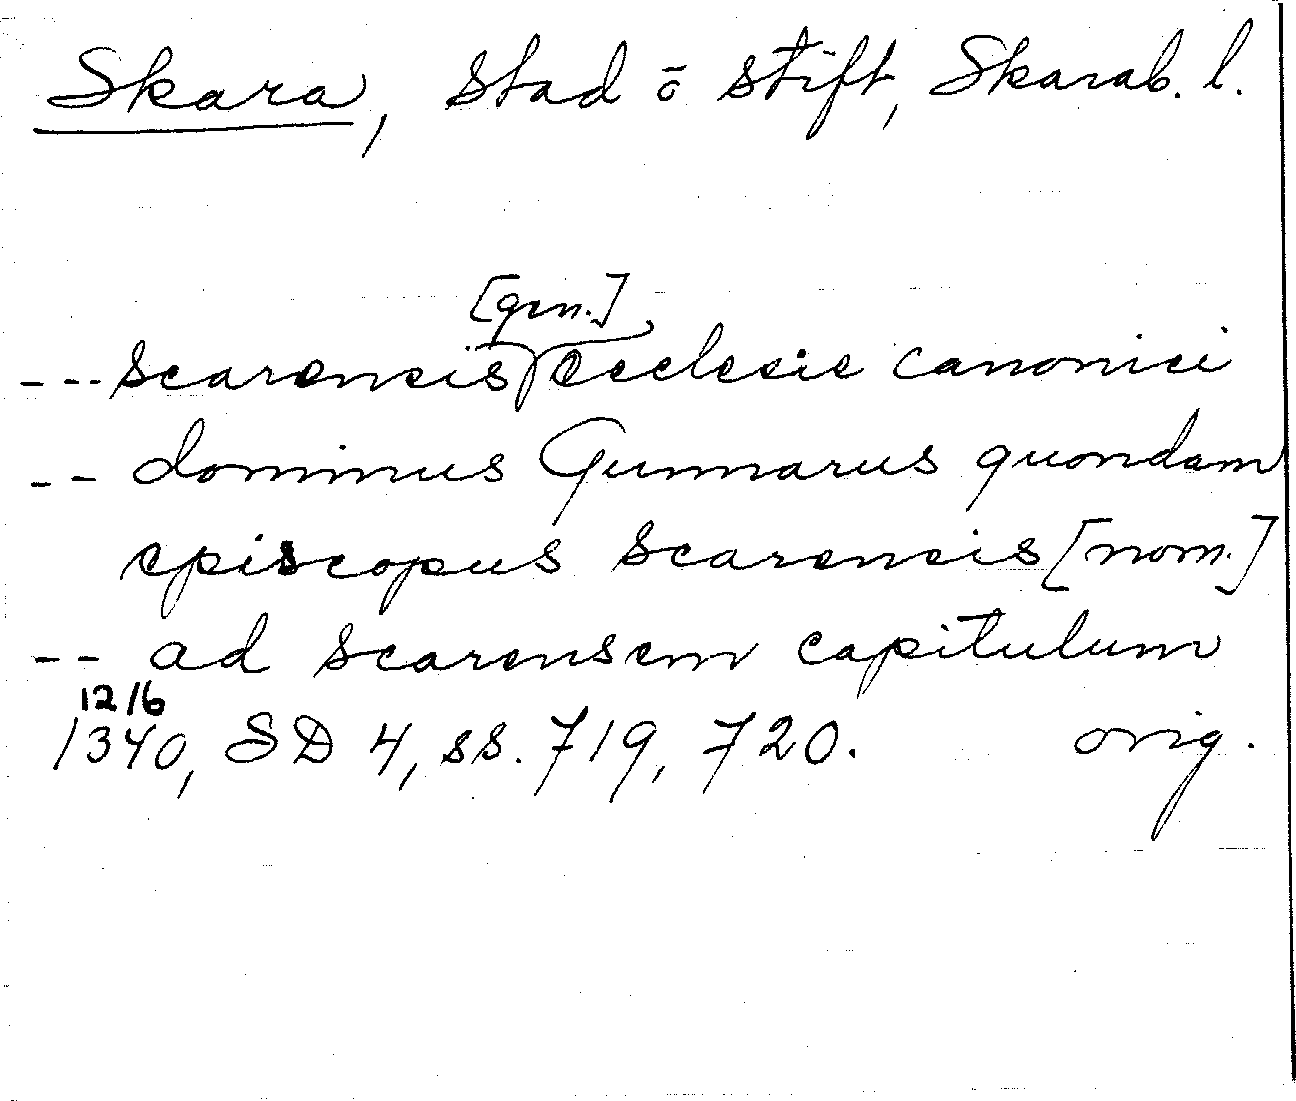 Skara, stad ō stift, Skarab. l.
[gen.]
--- scarensis ecclesie canonici
-- dominus Gunnarus quondam
episcopus scarensis [nom.]
-- ad scarensem capitulum
12/6
1340, SD 4, ss. 719, 720. orig.